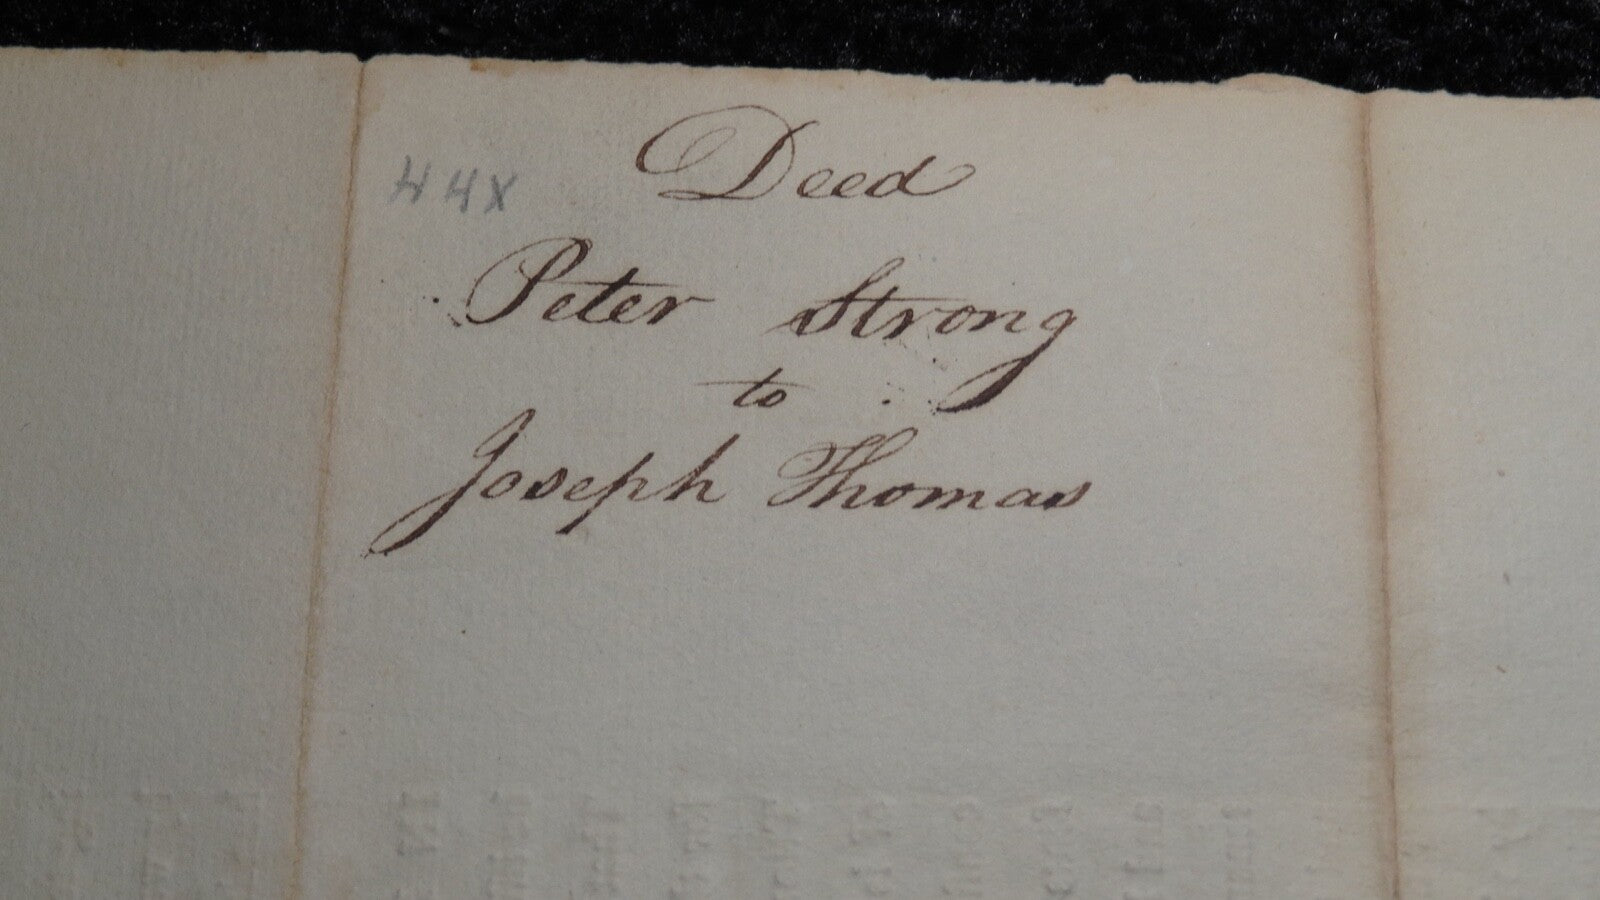 Deed
44X
Peter Strong
to
Joseph Thomas